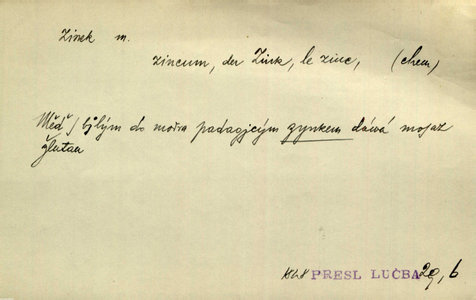 Zinek m.
zincum, der Zink, le zinc, (chem)
Měď s bjlým do modra padagjcým zynkem dáwá mosaz
žlutau
1828 PRESL LUČBA 29, b